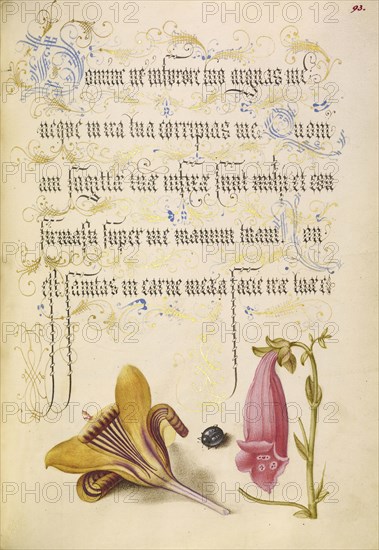 93.
Domine ne infurore tuo arguas me
neque in ira tua corripias me. Quoni
am sagittæ tuæ infixæ sunt mihi, et con
firmasti super me manum tuam. Non
est sanitas in carne mea a facie iræ tuæ
PHOTO12